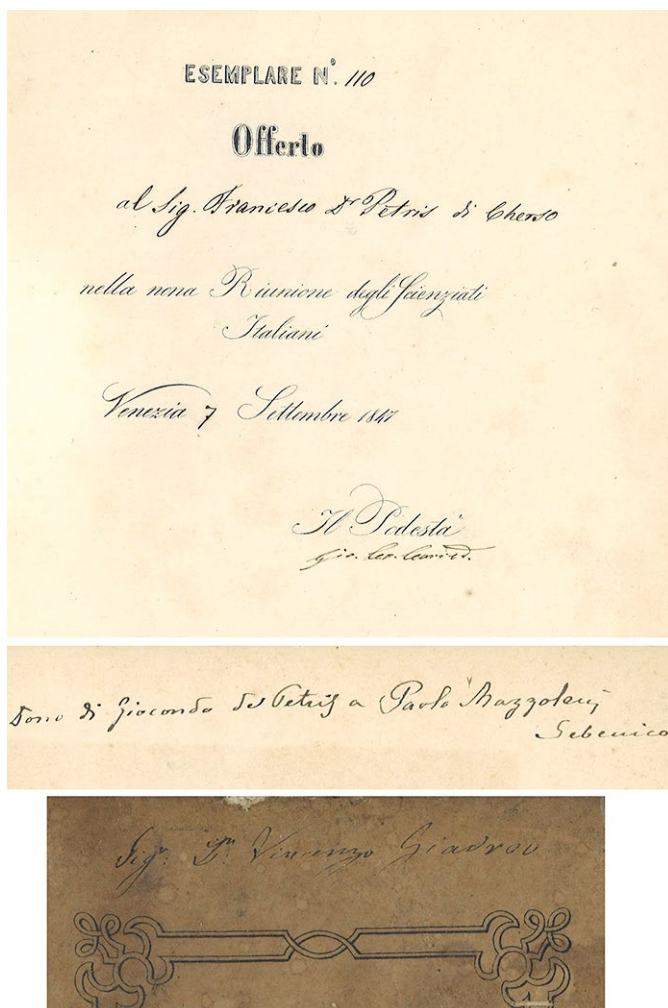 ESEMPLARE Nº. 110
Offerto
al Sig. Francesco Dr Petris di Cherso
nella nona Riunione degli Scienziati
Italiani
Venezia 7 Settembre 1847
Il Podestà
Gio.
Dono di Giocondo de Petris a Paolo Mazzoleni
Sebenico
Sigr. Dn. Vincenzo Giadrov